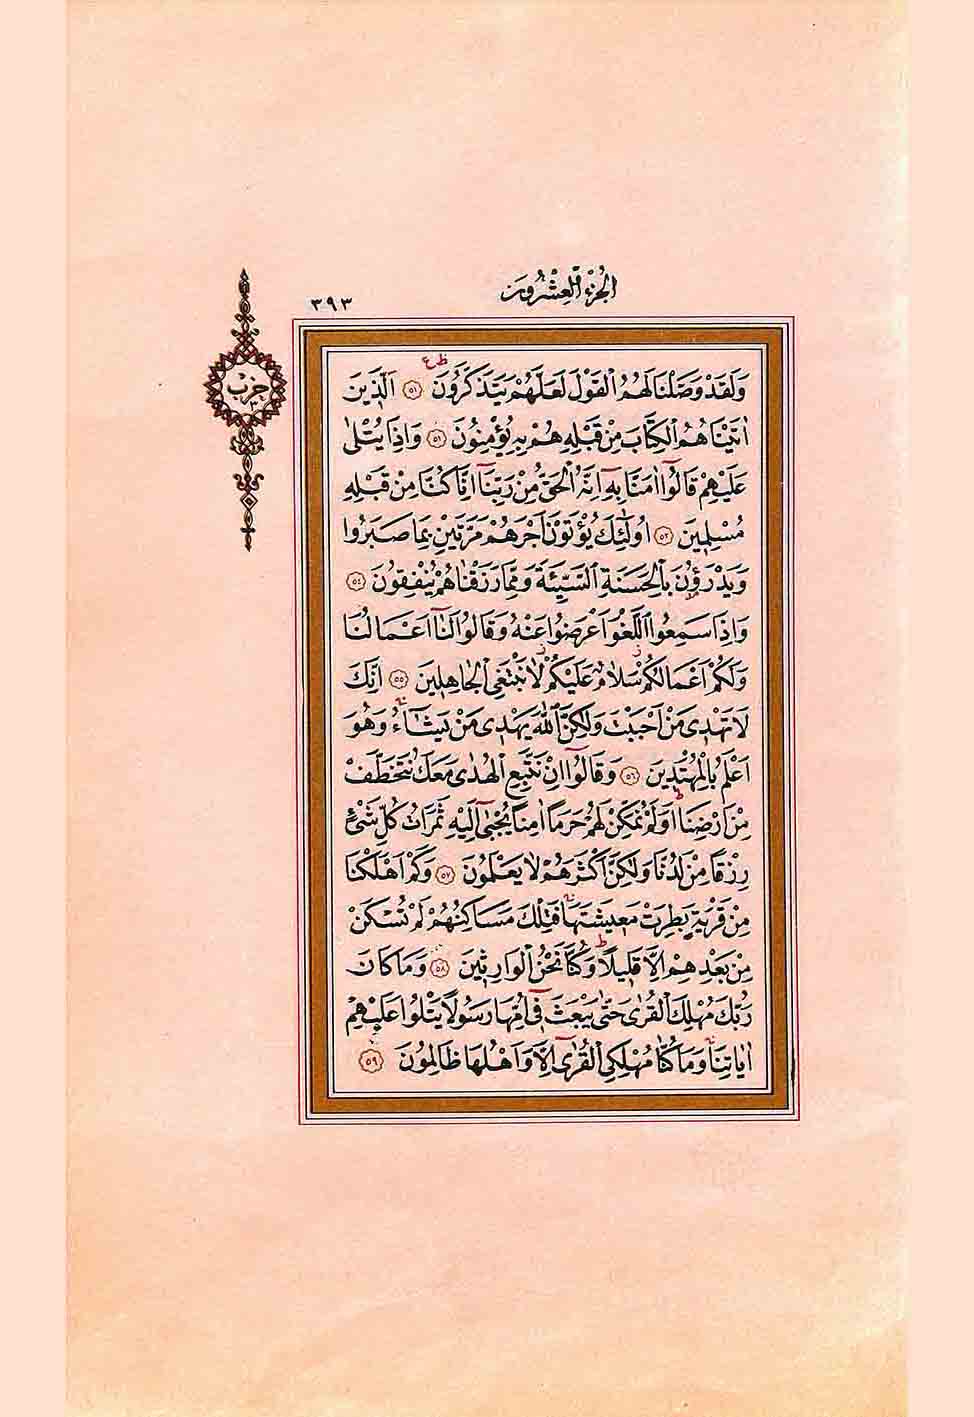 الجزء العشرون
٣٩٣
حزب
٣
وَلَقَدْ وَصَّلْنَا لَهُمُ الْقَوْلَ لَعَلَّهُمْ يَتَذَكَّرُونَ ﴿٥١﴾ اَلَّذِينَ
اٰتَيْنَاهُمُ الْكِتَابَ مِنْ قَبْلِهِ هُمْ بِهِ يُؤْمِنُونَ ﴿٥٢﴾ وَاِذَا يُتْلٰى
عَلَيْهِمْ قَالُٓوا اٰمَنَّا بِهِٓ اِنَّهُ الْحَقُّ مِنْ رَبِّنَٓا اِنَّا كُنَّا مِنْ قَبْلِهِ
مُسْلِمِينَ ﴿٥٣﴾ اُو۬لٰٓئِكَ يُؤْتَوْنَ اَجْرَهُمْ مَرَّتَيْنِ بِمَا صَبَرُوا
وَيَدْرَؤُ۫نَ بِالْحَسَنَةِ السَّيِّئَةَ وَمِمَّا رَزَقْنَاهُمْ يُنْفِقُونَ ﴿٥٤﴾
وَاِذَا سَمِعُوا اللَّغْوَ اَعْرَضُوا عَنْهُ وَقَالُوا لَنَٓا اَعْمَالُنَا
وَلَكُمْ اَعْمَالُكُمْ سَلَامٌ عَلَيْكُمْ لَا نَبْتَغِي الْجَاهِلِينَ ﴿٥٥﴾ اِنَّكَ
لَا تَهْدِي مَنْ اَحْبَبْتَ وَلٰكِنَّ اللّٰهَ يَهْدِي مَنْ يَشَٓاءُ وَهُوَ
اَعْلَمُ بِالْمُهْتَدِينَ ﴿٥٦﴾ وَقَالُٓوا اِنْ نَتَّبِعِ الْهُدٰى مَعَكَ نُتَخَطَّفْ
مِنْ اَرْضِنَا اَوَلَمْ نُمَكِّنْ لَهُمْ حَرَماً اٰمِناً يُجْبٰٓى اِلَيْهِ ثَمَرَاتُ كُلِّ شَيْءٍ
رِزْقاً مِنْ لَدُنَّا وَلٰكِنَّ اَكْثَرَهُمْ لَا يَعْلَمُونَ ﴿٥٧﴾ وَكَمْ اَهْلَكْنَا
مِنْ قَرْيَةٍ بَطِرَتْ مَعِيشَتَهَا فَتِلْكَ مَسَاكِنُهُمْ لَمْ تُسْكَنْ
مِنْ بَعْدِهِمْ اِلَّا قَلِيلاً وَكُنَّا نَحْنُ الْوَارِثِينَ ﴿٥٨﴾ وَمَا كَانَ
رَبُّكَ مُهْلِكَ الْقُرٰى حَتّٰى يَبْعَثَ فِٓي اُمِّهَا رَسُولاً يَتْلُوا عَلَيْهِمْ
اٰيَاتِنَا وَمَا كُنَّا مُهْلِكِي الْقُرٰٓى اِلَّا وَاَهْلُهَا ظَالِمُونَ ﴿٥٩﴾